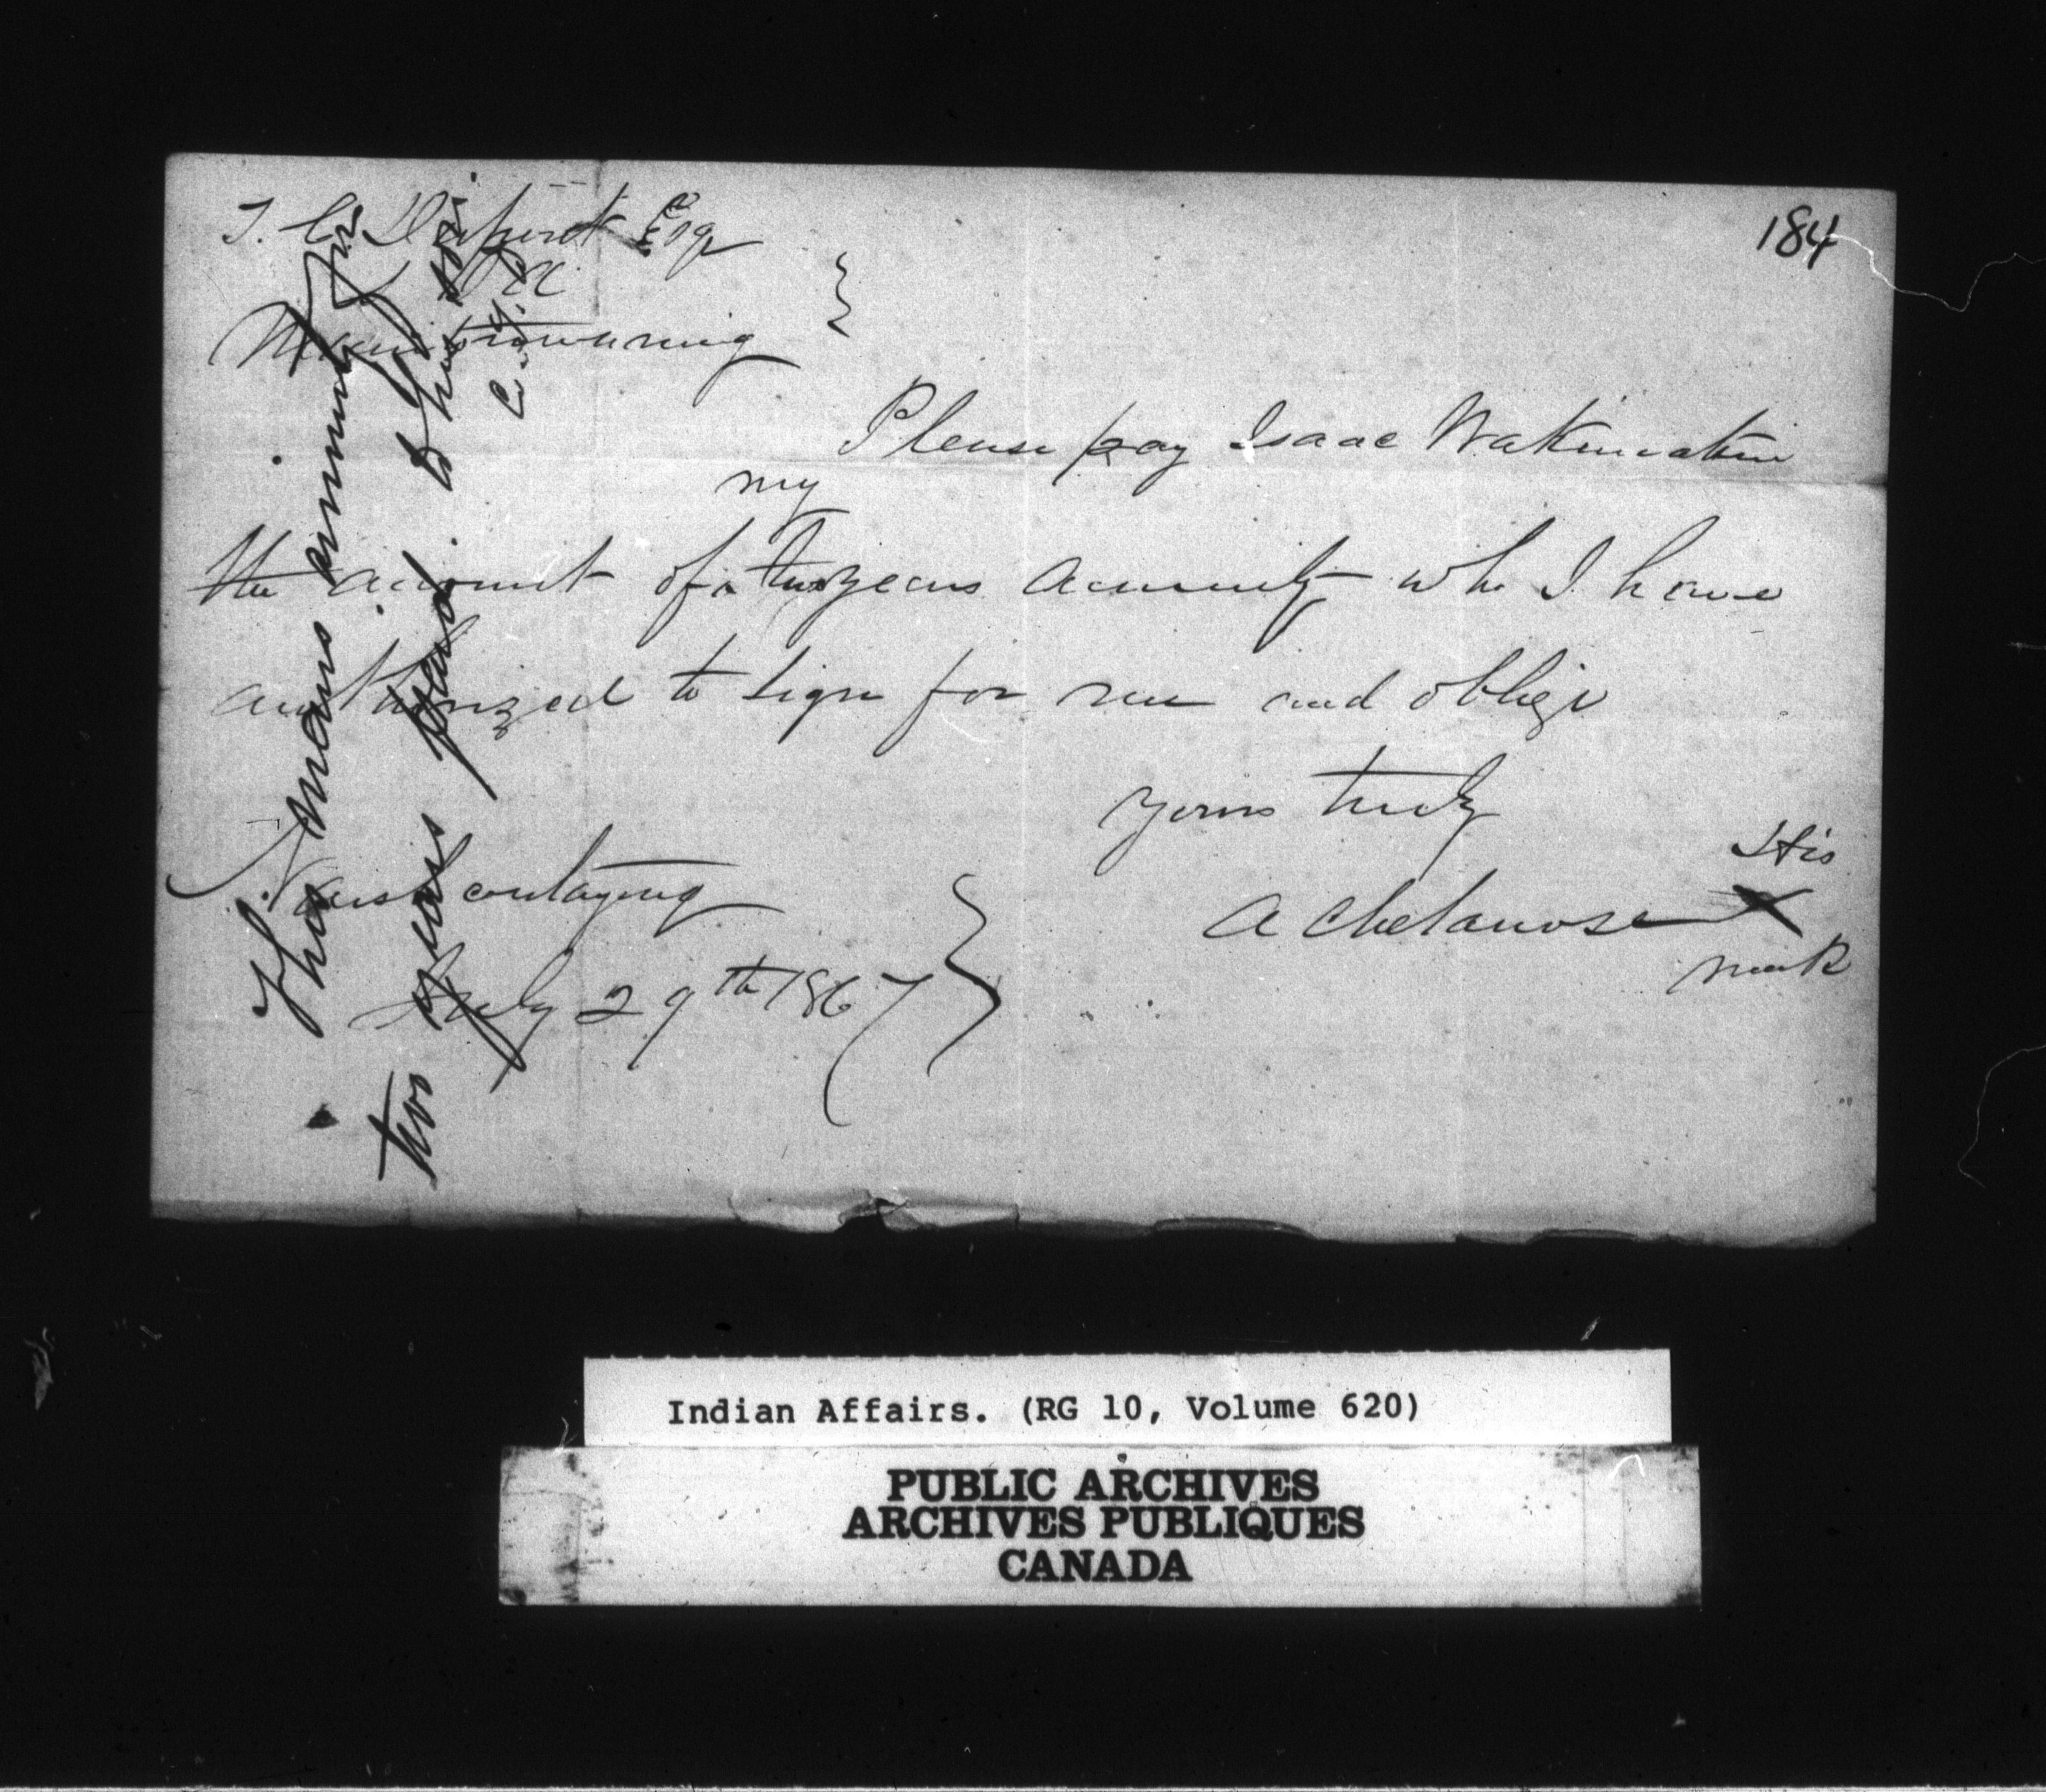 184
T. C. Dupont Esqr
Manitowaning
Please pay Isaac
my
the amount of two years annuity who I have
authorized to sign for me and oblige
yours truly
His
A Chetanose X
mark
July 29th 1867
This man's annuity for
two years paid to his
Indian Affairs. (RG 10, Volume 620)
PUBLIC ARCHIVES
ARCHIVES PUBLIQUES
CANADA